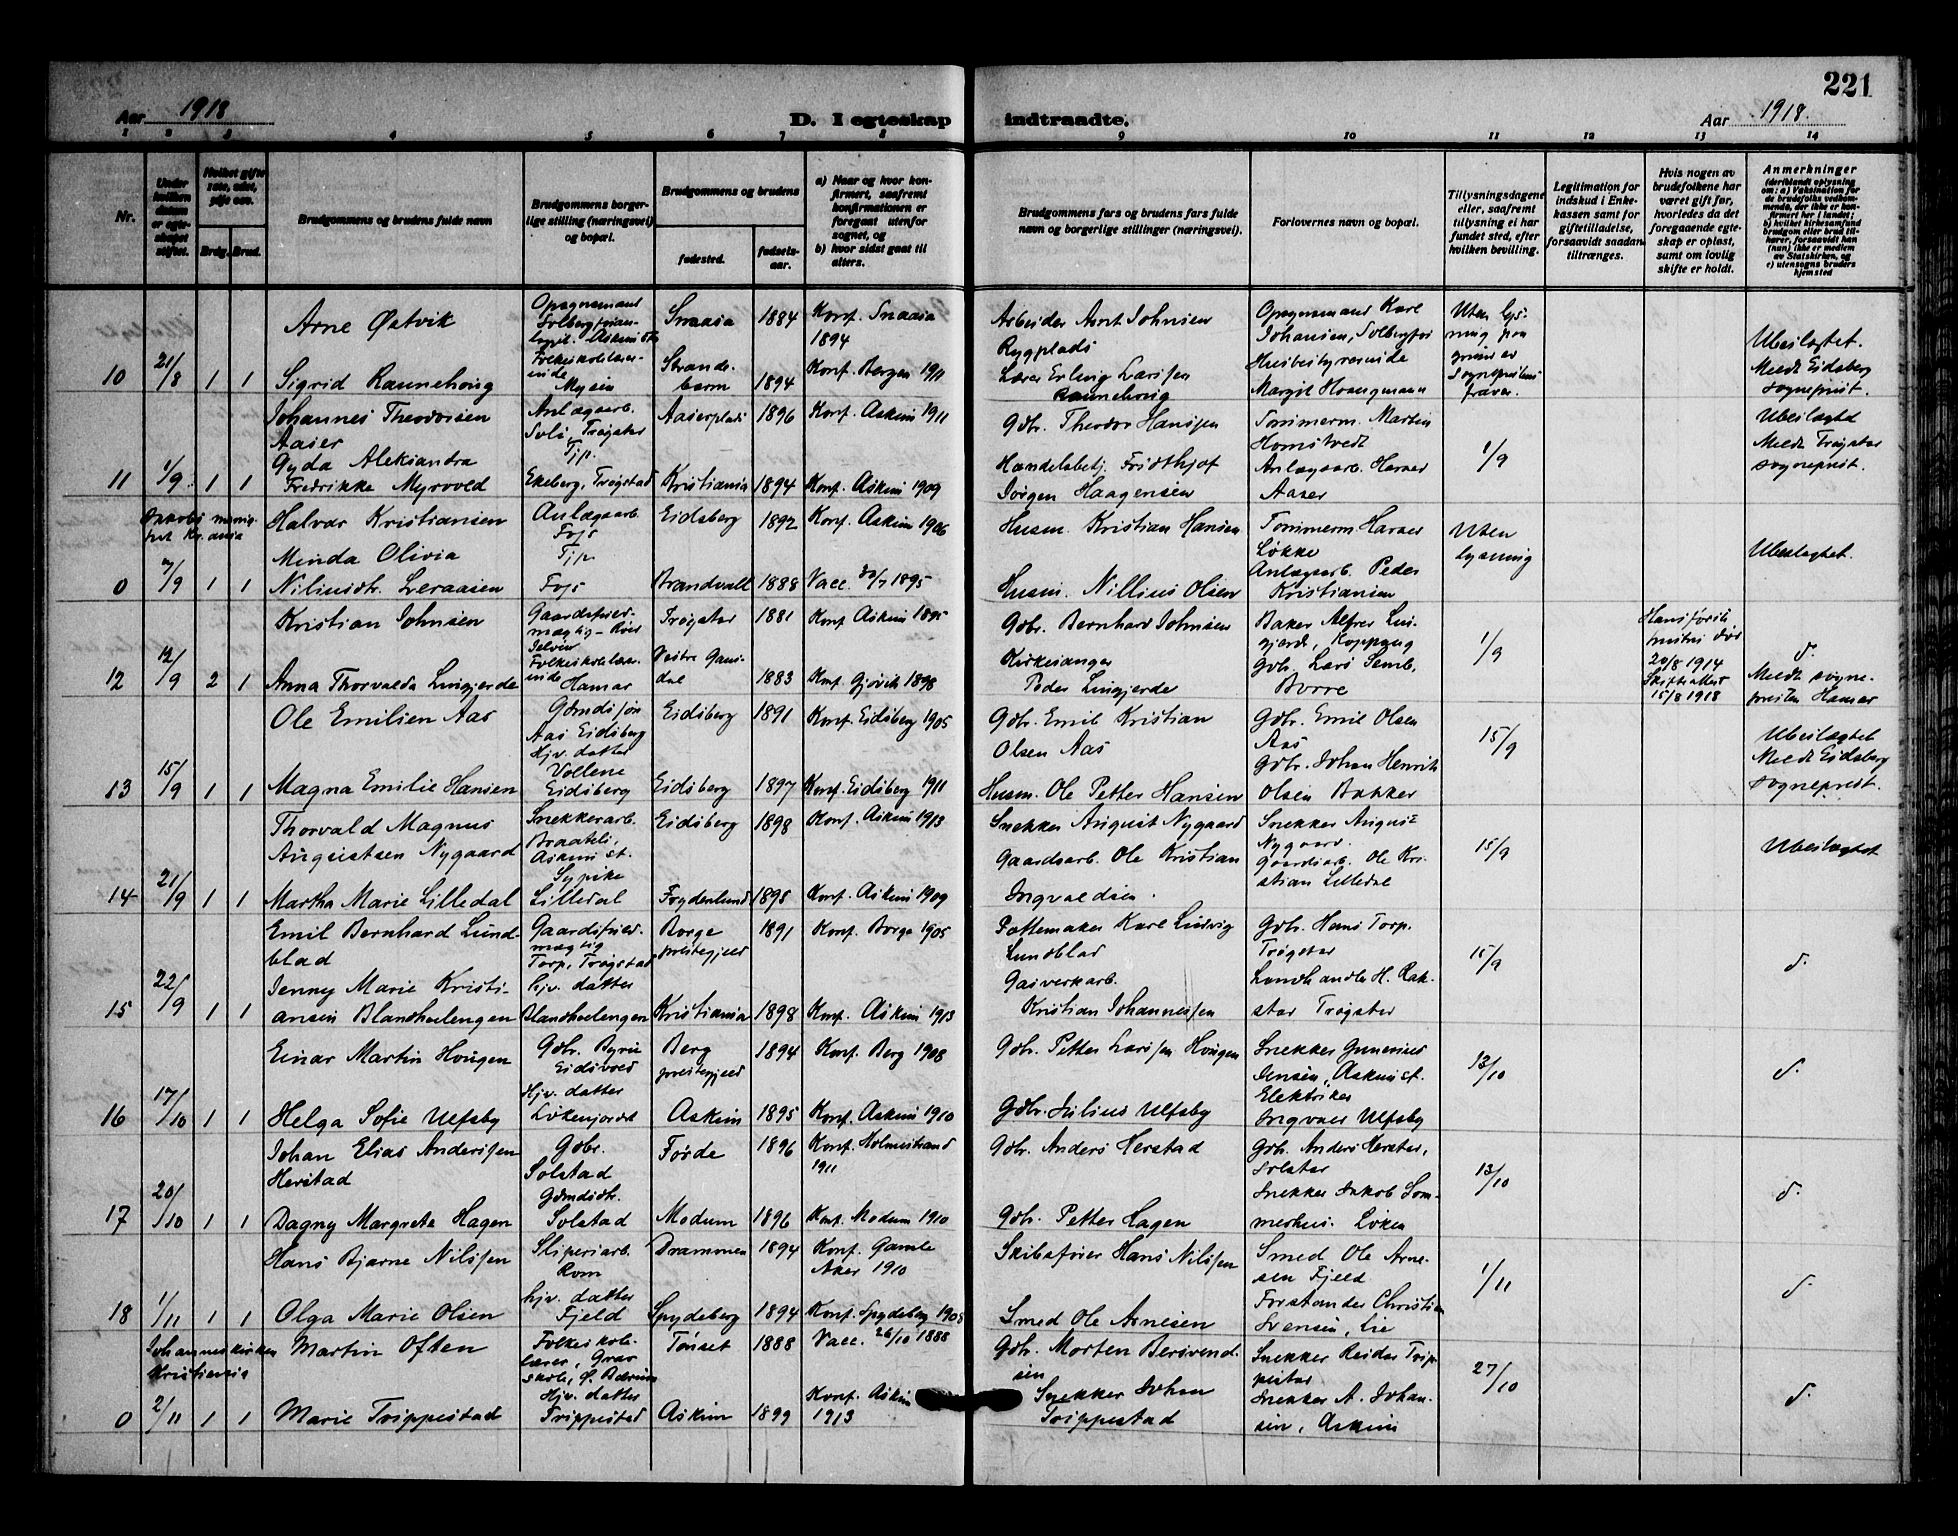 221
Aar 1918
D. I egteskap indtraadte.
Aar 1918.
1 2 3 4 5 6 7 8 9 10 11 12 13 14
Nr.
Under hvilken datum er egteskapet stiftet.
Hvilket gifte 1ste, 2det, 3dje osv.
Brudg. Brud.
Brudgommens og brudens fulde navn
Brudgommens borgerlige stilling (næringsvei) og bopæl.
Brudgommens og brudens
fødested.
fødselsaar.
a) Naar og hvor konfirmert, saafremt konfirmationen er foregaat utenfor sognet, og
b) hvor sidst gaat til alters.
Brudgommens fars og brudens fars fulde navn og borgerlige stillinger (næringsvei).
Forlovernes navn og bopæl.
Tillysningsdagene eller, saafremt tillysning ei har fundet sted, efter hvilken bevilling.
Legitimation for indskud i Enkekassen samt for giftetilladelse, forsaavidt saadan tiltrænges.
Hvis nogen av brudefolkene har været gift før, hvorledes da det foregaaende egteskap er opløst, samt om lovlig skifte er holdt.
Anmerkninger
(deriblandt oplysning om: a) Vaksination for de brudefolks vedkommende, der ikke er konfirmert her i landet; b) hvilket kirkesamfund brudgom eller brud tilhører, forsaavidt han (hun) ikke er medlem av Statskirken, og c) utensogns bruders hjemsted
Arne Østvik
Snaasa 1884 Konf. Snaasa 1894
Arbeider Arnt Johnsen Rygplads
Opsynsmand Karl Johansen,
Uten lysning paa grund av sogneprestens fravær.
Ubeslægtet.
Meldt Eidsberg sogneprest.
10 21/8 1 1 Sigrid Rannehovig
Mysen
Strandebarm 1894 Konf. Bergen 1911
Lærer Erling Larssen Rannehovig
Husbestyrerinde Margit
Johannes Theodorsen Aaser
Anlægsarb. Trøgstad
1896 Konf. Askim 1911
Gdbr. Theodor Hanssen
Tømmerm. Martin
1/9
Ubeslægtet
Meldt Trøgstad sogneprest.
11 1/9 1 1 Gyda Aleksandra Fredrikke Myrvold
Tjp.
Ekeberg, Trøgstad Kristiania 1894 Konf. Askim 1909
Handelsbetj. Fridthjof Jørgen Haagensen
Anlægsarb. Aaser
Halvar Kristiansen
Anlægsarb.
Eidsberg 1892 Konf. Askim 1906
Husm. Kristian Hansen
Tømmerm. Løkke
Uten lysning
Ubeslægtet.
0 7/9 1 1 Minda Olivia Niliusdtr. Leraasen
Tjp.
Brandvall 1888 Vacc. 1895
Husm. Nillius Olsen
Anlægsarb. Peder Kristiansen
Kristian Johnsen
Trøgstad 1881 Konf. Askim 1895
Gdbr. Bernhard Johnsen
Baker Alfred
1/9
Hans første hustru død 20/8 1914 Skifteattest 15/8 1918
d.
12 12/9 2 1 Anna Thorvalda Lingjerde
Hamar
Vestre Gausdal 1883 Konf. Gjøvik 1898
Kirkesanger Peder Lingjerde
Gdb. Lars Semb, Borre
Meldt sognepresten Hamar
Ole Emilien Aas
Gdmdssøn Aas Eidsberg
Eidsberg 1891 Konf. Eidsberg 1905
Gdbr. Emil Kristian Olsen Aas
Gdbr. Emil Olsen Aas
15/9
Ubeslægtet
Meldt Eidsberg sogneprest.
13 15/9 1 1 Magna Emilie Hansen
Hjv. datter Vollene Eidsberg
Eidsberg 1897 Konf. Eidsberg 1911
Husm. Ole Petter Hansen
Gdbr. Johan Henrik Olsen Bakker
Thorvald Magnus Augustsen Nygaard
Snekkerarb. Braateli, Askim st.
Eidsberg 1898 Konf. Askim 1913
Snekker August Nygaard
Snekker August Nygaard.
15/9
Ubeslægtet
14 21/9 1 1 Martha Marie Lilledal
Sypike Lilledal
Frydenlund 1895 Konf. Askim 1909
Gaardsarb. Ole Kristian Ingvaldsen.
Gaardsarb. Ole Kristian Lilledal
Emil Bernhard Lundblad
Torp, Trøgstad
Borge prestegjeld 1891 Konf. Borge 1905
Pottemaker Karl Ludvig Lundblad
Gdbr. Hans Torp. Trøgstad
15/9
d.
15 22/9 1 1 Jenny Marie Kristiansen Blandhoelengen
hjv. datter Blandhoelengen
Kristiania 1898 Konf. Askim 1913
Gasverkarb. Kristian Johannessen
Landhandler H. Rakstad Trøgstad
Einar Martin Hougen
Gdbr. Eidsvold
Berg prestegjeld 1894 Konf. Berg 1908
Gdbr. Petter Larssen Hougen
Snekker Gunerius Jensen, Askim st.
13/10
d.
16 17/10 1 1 Helga Sofie Ulfsby
Hjv. datter Løkenjordet
Askim 1895 Konf. Askim 1910
Gdbr. Julius Ulfsby
Elektriker Ingvald Ulfsby
Johan Elias Anderssen Herstad
Gdbr. Solstad
Førde 1896 Konf. Holmestrand 1911
Gdbr. Anders Herstad
Gdb. Anders Herstad, Solstad
13/10
d.
17 20/10 1 1 Dagny Margrete Hagen
Gdmdsdtr. Solstad
Modum 1896 Konf. Modum 1910
Gdbr. Petter Hagen
Snekker Jakob Sommerhus. Løken
Hans Bjarne Nilssen
Sliperiarb. Rom
Drammen 1894 Konf. Gamle Aker 1910
Skibsfører Hans Nilssen
Smed Ole Arnesen Fjeld
1/11
d
18 1/11 1 1 Olga Marie Olsen
hjv. datter Fjeld
Spydeberg 1894 Konf. Spydeberg 1908
Smed Ole Arnesen
Forstander Christian Svensen, Lie
Johanneskirken Kristiania
Martin Often
Folkeskolelærer,
Tønset 1888 Vacc. 26/10 1888
Gdbr. Morten
Snekker Reidar Trippestad
27/10
d.
0 2/11 1 1 Marie Trippestad
Hjv. datter Trippestad
Askim 1899 Konf. Askim 1913
Snekker Johan Trippestad
Snekker A. Johansen, Askim